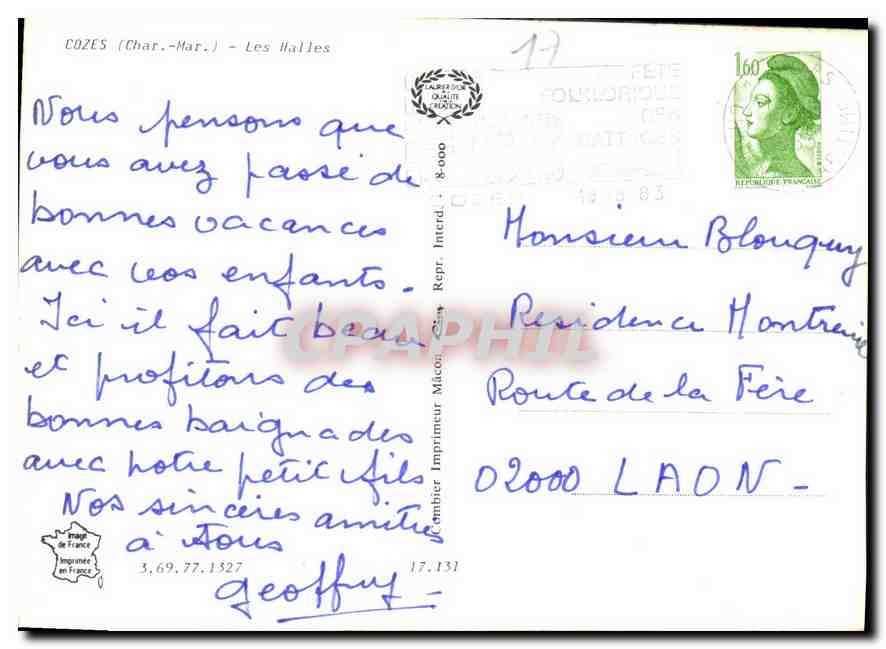 COZES (Char.-Mar.) - Les Halles
17
LAURIER D'OR
DE
QUALITE
CREATION
1,60
REPUBLIQUE FRANÇAISE
FETE
FOLKLORIQUE
DES
83
Nous pensons que
vous avez passé de
bonnes vacances
avec vos enfants.
Ici il fait beau
et profitons des
bonnes baignades
avec notre petit fils
Nos sincères amitiés
à tous
Geoffroy
Combier Imprimeur Mâcon Repr. Interd. 8-000
Monsieur Blouquy
Residence Montreuil
Route de la Fère
02000 LAON -
Image
de France
Imprimée
en France
3.69.77.1327
17.131
CPAPHIL